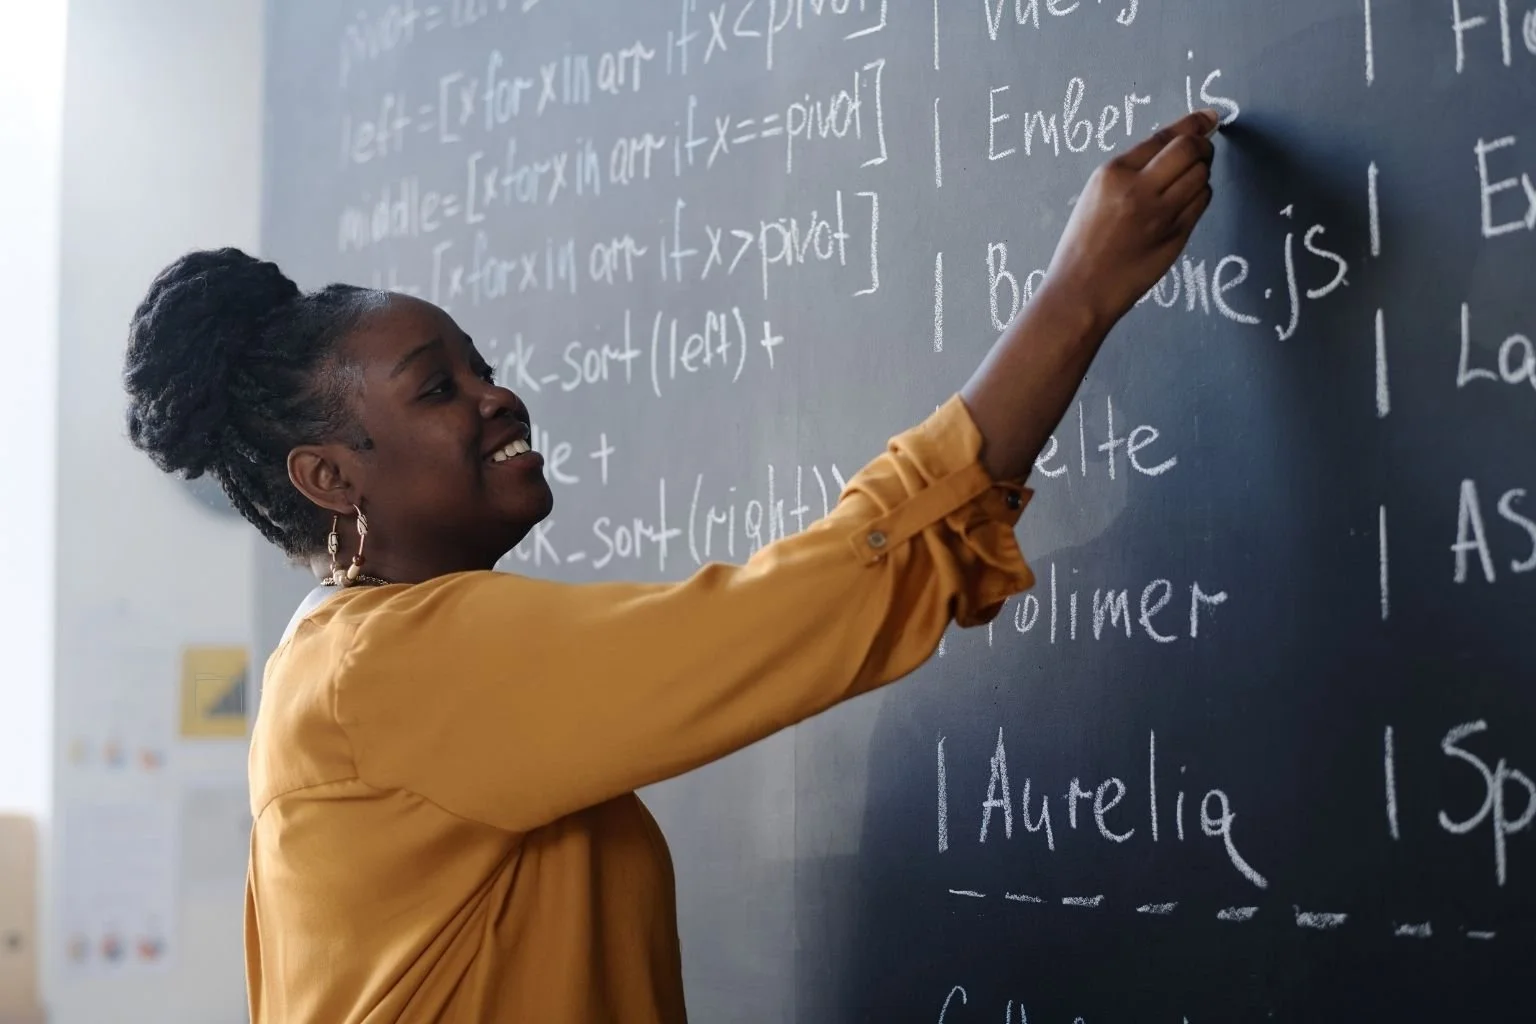 pivot=
left=[x for x in arr if x<pivot]
middle=[x for x in arr if x==pivot]
[x for x in arr if x>pivot]
ick_sort(left)+
dle+
ck_sort(right))
| Vue.js
| Ember.js
|
| elte
olimer
| Aurelia
| Flo
| Ex
| La
| AS
| Sp